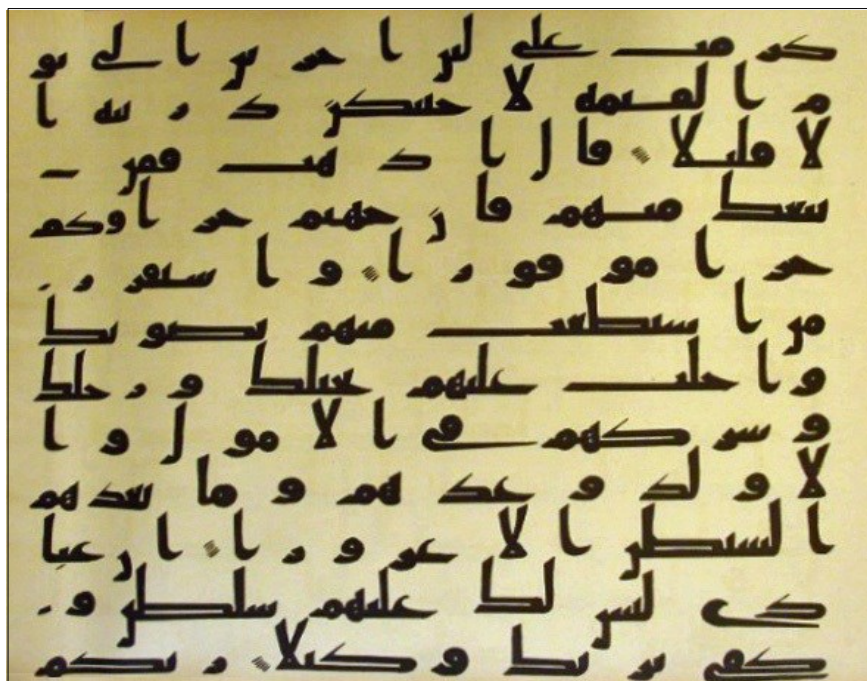 كرمت على لئن اخرتن الى يو
م القيمة لاحتنكن ذريته ا
لا قليلا قال اذهب فمن ت
بعك منهم فان جهنم جزاوكم
جزا موفورا واستفز ز
من استطعت منهم بصوتك
واجلب عليهم بخيلك ورجلك
وشركهم فى الامول وا
لاولد وعدهم وما يعدهم
الشيطن الا غرورا ان عبا
دى ليس لك عليهم سلطن و
كفى بربك وكيلا ربكم